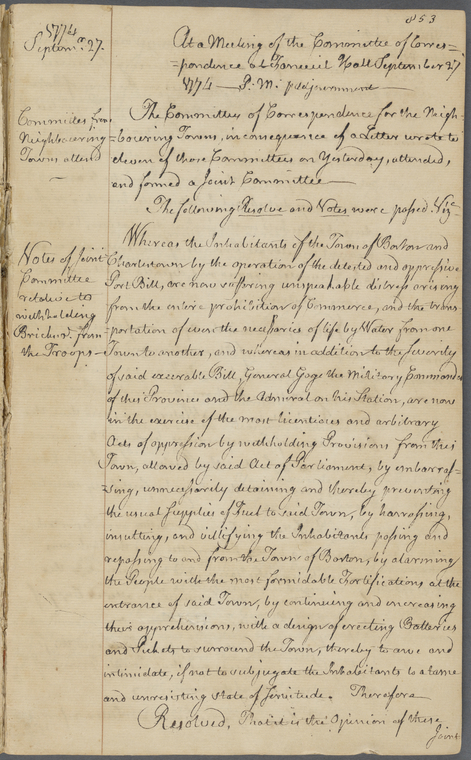 853
1774
Septemr. 27.
At a Meeting of the Committee of Corres=
=pondence at Faneuil Hall September 27
1774 — P. M. p adjournment
Committees from
Neighbouring
Towns attend
The Committees of Correspondence for the Neigh-
-bouring Towns, in consequence of a Letter wrote to
eleven of those Committees on Yesterday, attended,
and formed a Joint Committee
The following Resolve and Votes were passed. Viz
Votes of Joint
Committee
relative to
withholding
Bricks &c. from
the Troops
Whereas the Inhabitants of the Town of Boston and
Charlestown by the operation of the detested and oppressive
Port Bill, are now suffering unspeakable distress arising
from the entire prohibition of Commerce, and the trans
portation of even the necessaries of life by Water from one
Town to another, and whereas in addition to the Severity
of said execrable Bill, General Gage the Military Commander
of this Province and the Admiral on this Station, are now
in the exercise of the most licentious and arbitrary
Acts of oppression by withholding Provisions from this
Town, allowed by said Act of Parliament; by embarras-
-sing, unnecessarily detaining and thereby preventing
the usual Supplies of Fuel to said Town, by harrassing,
insulting, and vilifying the Inhabitants passing and
repassing to and from the Town of Boston, by alarming
the People with the most formidable Fortifications at the
entrance of said Town, by continuing and increasing
their apprehensions, with a design of erecting Batteries
and Pickets to surround the Town, thereby to awe and
intimidate, if not to subjugate the Inhabitants to a tame
and unresisting state of Servitude. Therefore
Resolved, That it is the Opinion of these
Joint